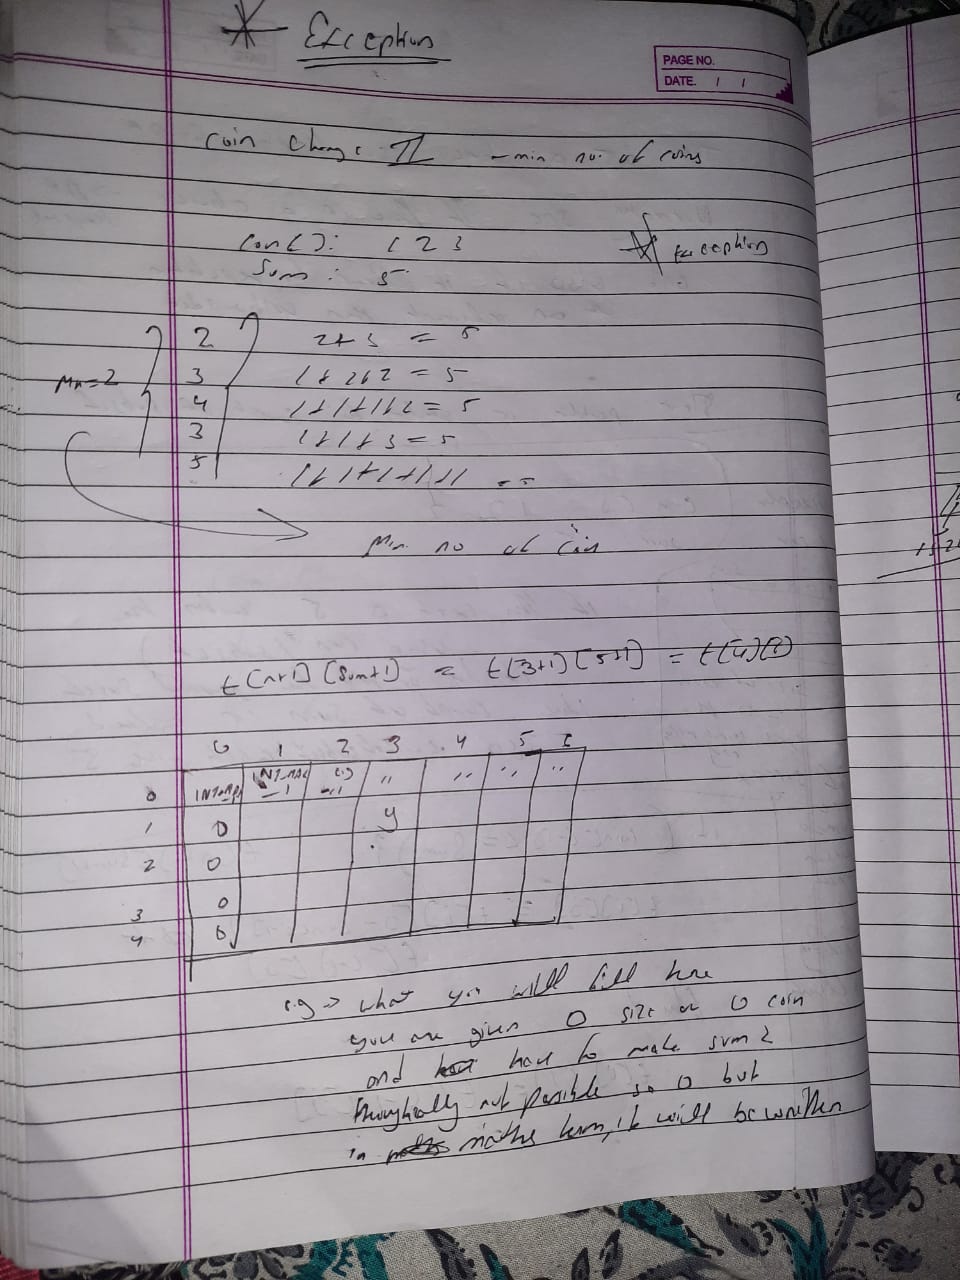 * Exception
PAGE NO.
DATE. / /
coin change II - min no. of coins
coin[]: 1 2 3
* Exception
Sum : 5
2 2+3 = 5
Min=2 3 1+2+2 = 5
4 1+1+1+2 = 5
3 1+1+3 = 5
5 1+1+1+1+1 = 5
Min no of coin
t[n+1][sum+1] = t[3+1][5+1] = t[4][6]
0 1 2 3 4 5 6
0 INT_MAX-1 e.g ,, ,, ,, ,, ,,
1 0
2 0
3 0
4 0
e.g → what you will fill here
you are given 0 size or 0 coin
and have to make sum 2
not possible so 0 but
in maths term, it will be written